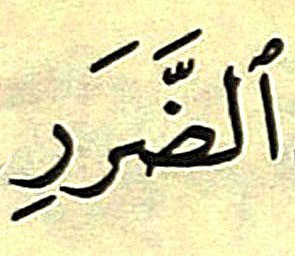 ٱلضَّرَرِ